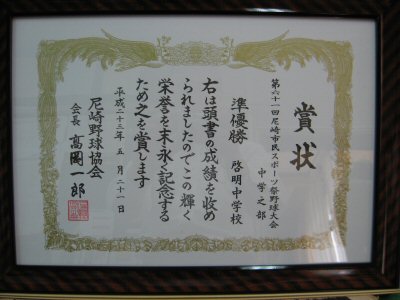 賞状
第六十一回尼崎市民スポーツ祭野球大会
中学之部
準優勝 啓明中学校
右は頭書の成績を收め
られましたのでこの輝く
栄誉を末永く記念する
ため之を賞します
平成二十三年五月二十一日
尼崎野球協会
会長 髙岡一郎